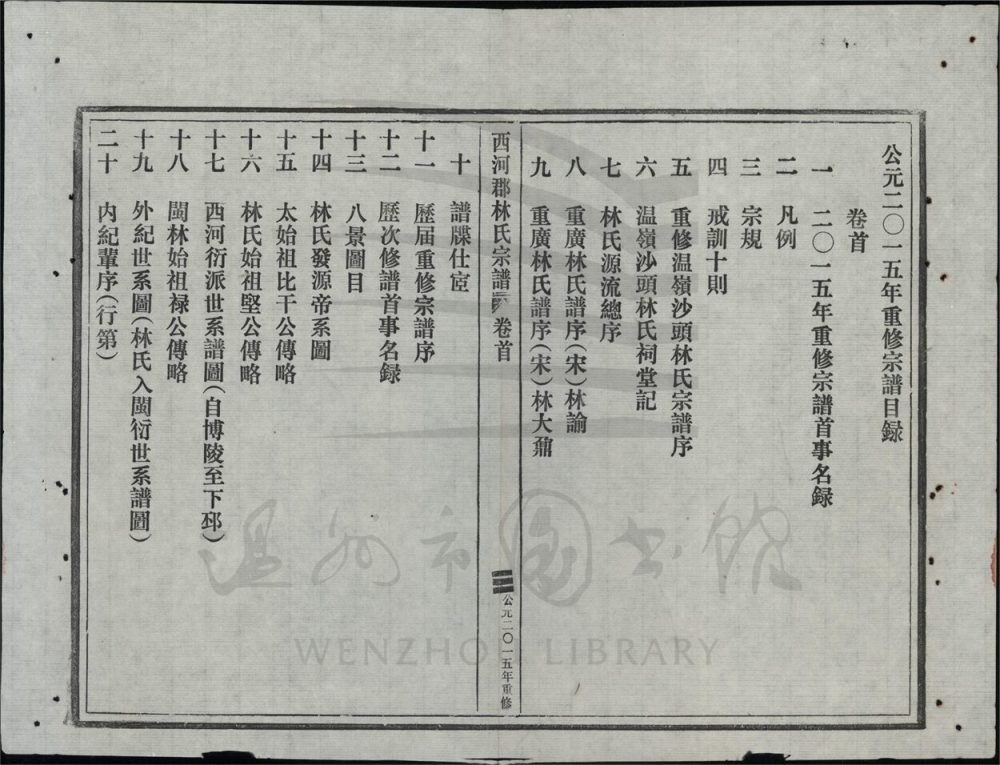 公元二〇一五年重修宗譜目録
卷首
一 二〇一五年重修宗譜首事名録
二 凡例
三 宗規
四 戒訓十則
五 重修温嶺沙頭林氏宗譜序
六 温嶺沙頭林氏祠堂記
七 林氏源流總序
八 重廣林氏譜序(宋)林諭
九 重廣林氏譜序(宋)林大鼐
西河郡林氏宗譜 卷首
公元二〇一五年重修
十 譜牒仕宦
十一 歷届重修宗譜序
十二 歷次修譜首事名録
十三 八景圖目
十四 林氏發源帝系圖
十五 太始祖比干公傳略
十六 林氏始祖堅公傳略
十七 西河衍派世系譜圖(自博陵至下邳)
十八 閩林始祖禄公傳略
十九 外紀世系圖(林氏入閩衍世系譜圖)
二十 内紀輩序(行第)
温州市图书馆
WENZHOU LIBRARY